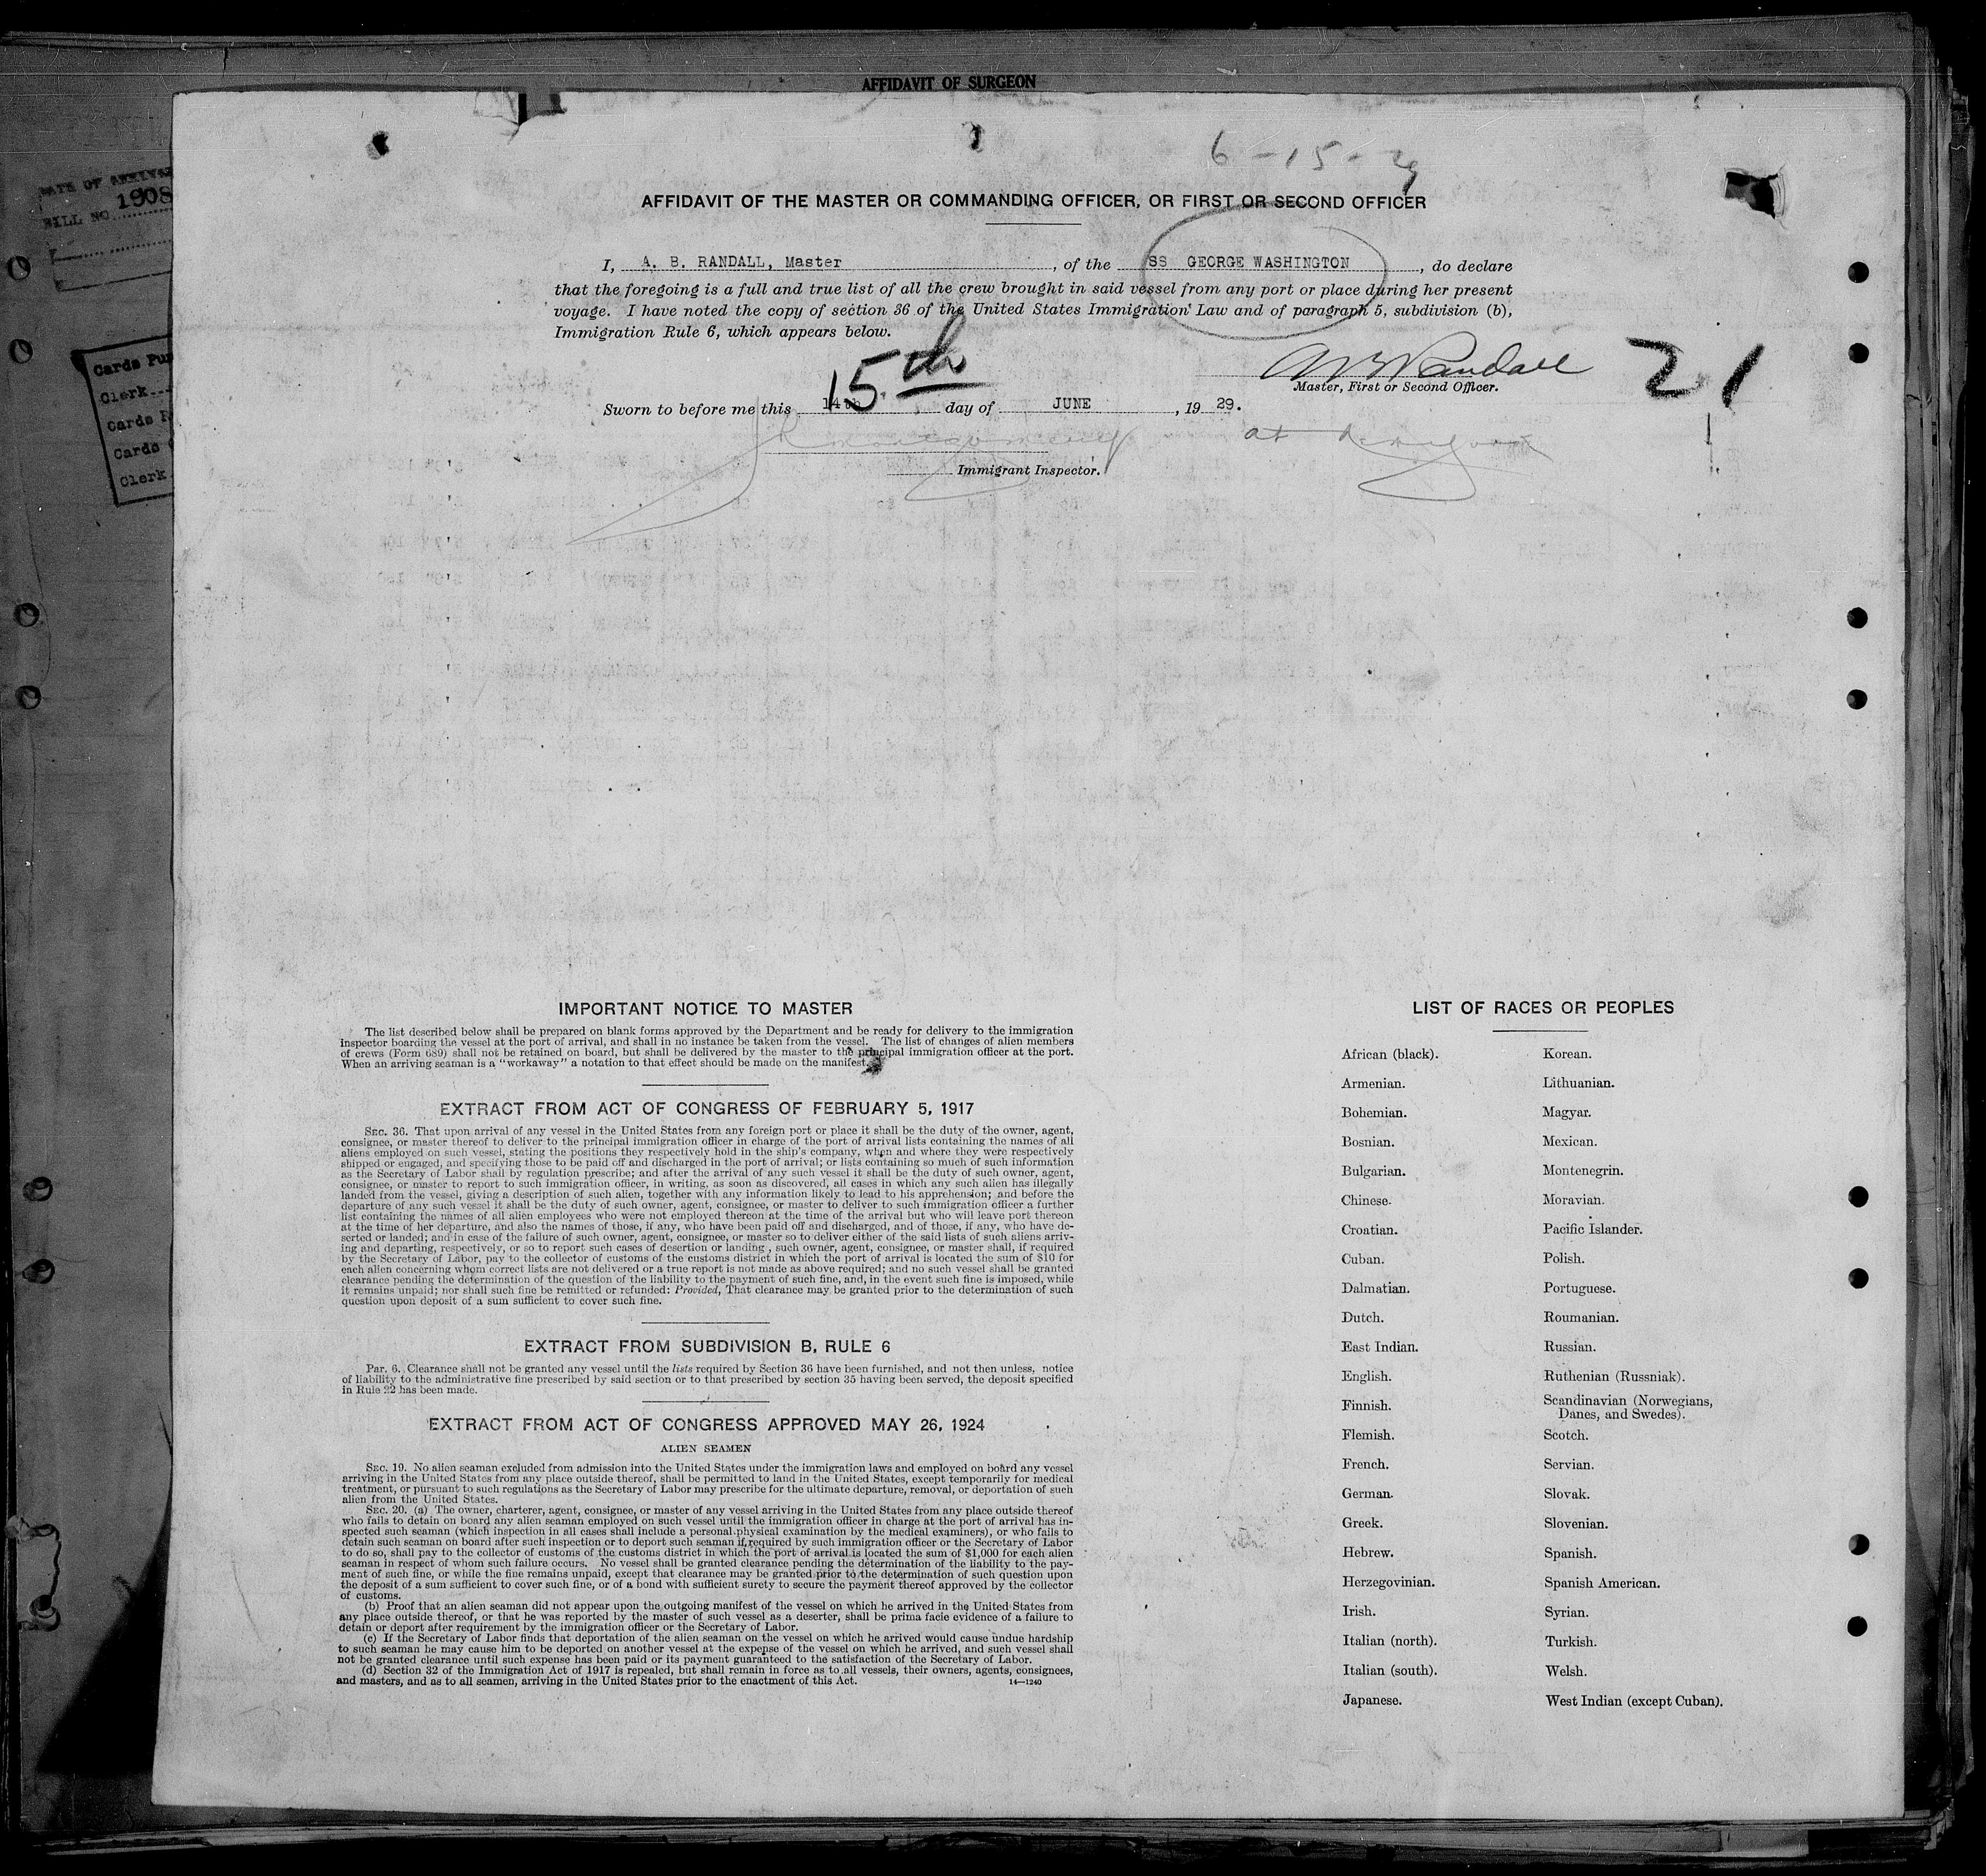 AFFIDAVIT OF SURGEON
6-15-29
DATE OF ARRIVAL
1908
BILL NO
Cards
Clerk
Cards
Cards
Clerk
AFFIDAVIT OF THE MASTER OR COMMANDING OFFICER, OR FIRST OR SECOND OFFICER
I, A. B. RANDALL, Master, of the SS GEORGE WASHINGTON, do declare
that the foregoing is a full and true list of all the crew brought in said vessel from any port or place during her present
voyage. I have noted the copy of section 36 of the United States Immigration Law and of paragraph 5, subdivision (b),
Immigration Rule 6, which appears below.
15th
A B Randall
21
Master, First or Second Officer.
Sworn to before me this 14th day of JUNE, 19 29.
at
Immigrant Inspector.
IMPORTANT NOTICE TO MASTER
The list described below shall be prepared on blank forms approved by the Department and be ready for delivery to the immigration
inspector boarding the vessel at the port of arrival, and shall in no instance be taken from the vessel. The list of changes of alien members
of crews (Form 689) shall not be retained on board, but shall be delivered by the master to the principal immigration officer at the port.
When an arriving seaman is a "workaway" a notation to that effect should be made on the manifest.
EXTRACT FROM ACT OF CONGRESS OF FEBRUARY 5, 1917
SEC. 36. That upon arrival of any vessel in the United States from any foreign port or place it shall be the duty of the owner, agent,
consignee, or master thereof to deliver to the principal immigration officer in charge of the port of arrival lists containing the names of all
aliens employed on such vessel, stating the positions they respectively hold in the ship's company, when and where they were respectively
shipped or engaged, and specifying those to be paid off and discharged in the port of arrival; or lists containing so much of such information
as the Secretary of Labor shall by regulation prescribe; and after the arrival of any such vessel it shall be the duty of such owner, agent,
consignee, or master to report to such immigration officer, in writing, as soon as discovered, all cases in which any such alien has illegally
landed from the vessel, giving a description of such alien, together with any information likely to lead to his apprehension; and before the
departure of any such vessel it shall be the duty of such owner, agent, consignee, or master to deliver to such immigration officer a further
list containing the names of all alien employees who were not employed thereon at the time of the arrival but who will leave port thereon
at the time of her departure, and also the names of those, if any, who have been paid off and discharged, and of those, if any, who have de-
serted or landed; and in case of the failure of such owner, agent, consignee, or master so to deliver either of the said lists of such aliens arriv-
ing and departing, respectively, or so to report such cases of desertion or landing, such owner, agent, consignee, or master shall, if required
by the Secretary of Labor, pay to the collector of customs of the customs district in which the port of arrival is located the sum of $10 for
each alien concerning whom correct lists are not delivered or a true report is not made as above required; and no such vessel shall be granted
clearance pending the determination of the question of the liability to the payment of such fine, and, in the event such fine is imposed, while
it remains unpaid; nor shall such fine be remitted or refunded: Provided, That clearance may be granted prior to the determination of such
question upon deposit of a sum sufficient to cover such fine.
EXTRACT FROM SUBDIVISION B, RULE 6
Par. 6. Clearance shall not be granted any vessel until the lists required by Section 36 have been furnished, and not then unless, notice
of liability to the administrative fine prescribed by said section or to that prescribed by section 35 having been served, the deposit specified
in Rule 22 has been made.
EXTRACT FROM ACT OF CONGRESS APPROVED MAY 26, 1924
ALIEN SEAMEN
SEC. 19. No alien seaman excluded from admission into the United States under the immigration laws and employed on board any vessel
arriving in the United States from any place outside thereof, shall be permitted to land in the United States, except temporarily for medical
treatment, or pursuant to such regulations as the Secretary of Labor may prescribe for the ultimate departure, removal, or deportation of such
alien from the United States.
SEC. 20. (a) The owner, charterer, agent, consignee, or master of any vessel arriving in the United States from any place outside thereof
who fails to detain on board any alien seaman employed on such vessel until the immigration officer in charge at the port of arrival has in-
spected such seaman (which inspection in all cases shall include a personal physical examination by the medical examiners), or who fails to
detain such seaman on board after such inspection or to deport such seaman if required by such immigration officer or the Secretary of Labor
to do so, shall pay to the collector of customs of the customs district in which the port of arrival is located the sum of $1,000 for each alien
seaman in respect of whom such failure occurs. No vessel shall be granted clearance pending the determination of the liability to the pay-
ment of such fine, or while the fine remains unpaid, except that clearance may be granted prior to the determination of such question upon
the deposit of a sum sufficient to cover such fine, or of a bond with sufficient surety to secure the payment thereof approved by the collector
of customs.
(b) Proof that an alien seaman did not appear upon the outgoing manifest of the vessel on which he arrived in the United States from
any place outside thereof, or that he was reported by the master of such vessel as a deserter, shall be prima facie evidence of a failure to
detain or deport after requirement by the immigration officer or the Secretary of Labor.
(c) If the Secretary of Labor finds that deportation of the alien seaman on the vessel on which he arrived would cause undue hardship
to such seaman he may cause him to be deported on another vessel at the expense of the vessel on which he arrived, and such vessel shall
not be granted clearance until such expense has been paid or its payment guaranteed to the satisfaction of the Secretary of Labor.
(d) Section 32 of the Immigration Act of 1917 is repealed, but shall remain in force as to all vessels, their owners, agents, consignees,
and masters, and as to all seamen, arriving in the United States prior to the enactment of this Act.
14—1240
LIST OF RACES OR PEOPLES
African (black).
Armenian.
Bohemian.
Bosnian.
Bulgarian.
Chinese.
Croatian.
Cuban.
Dalmatian.
Dutch.
East Indian.
English.
Finnish.
Flemish.
French.
German.
Greek.
Hebrew.
Herzegovinian.
Irish.
Italian (north).
Italian (south).
Japanese.
Korean.
Lithuanian.
Magyar.
Mexican.
Montenegrin.
Moravian.
Pacific Islander.
Polish.
Portuguese.
Roumanian.
Russian.
Ruthenian (Russniak).
Scandinavian (Norwegians,
Danes, and Swedes).
Scotch.
Servian.
Slovak.
Slovenian.
Spanish.
Spanish American.
Syrian.
Turkish.
Welsh.
West Indian (except Cuban).